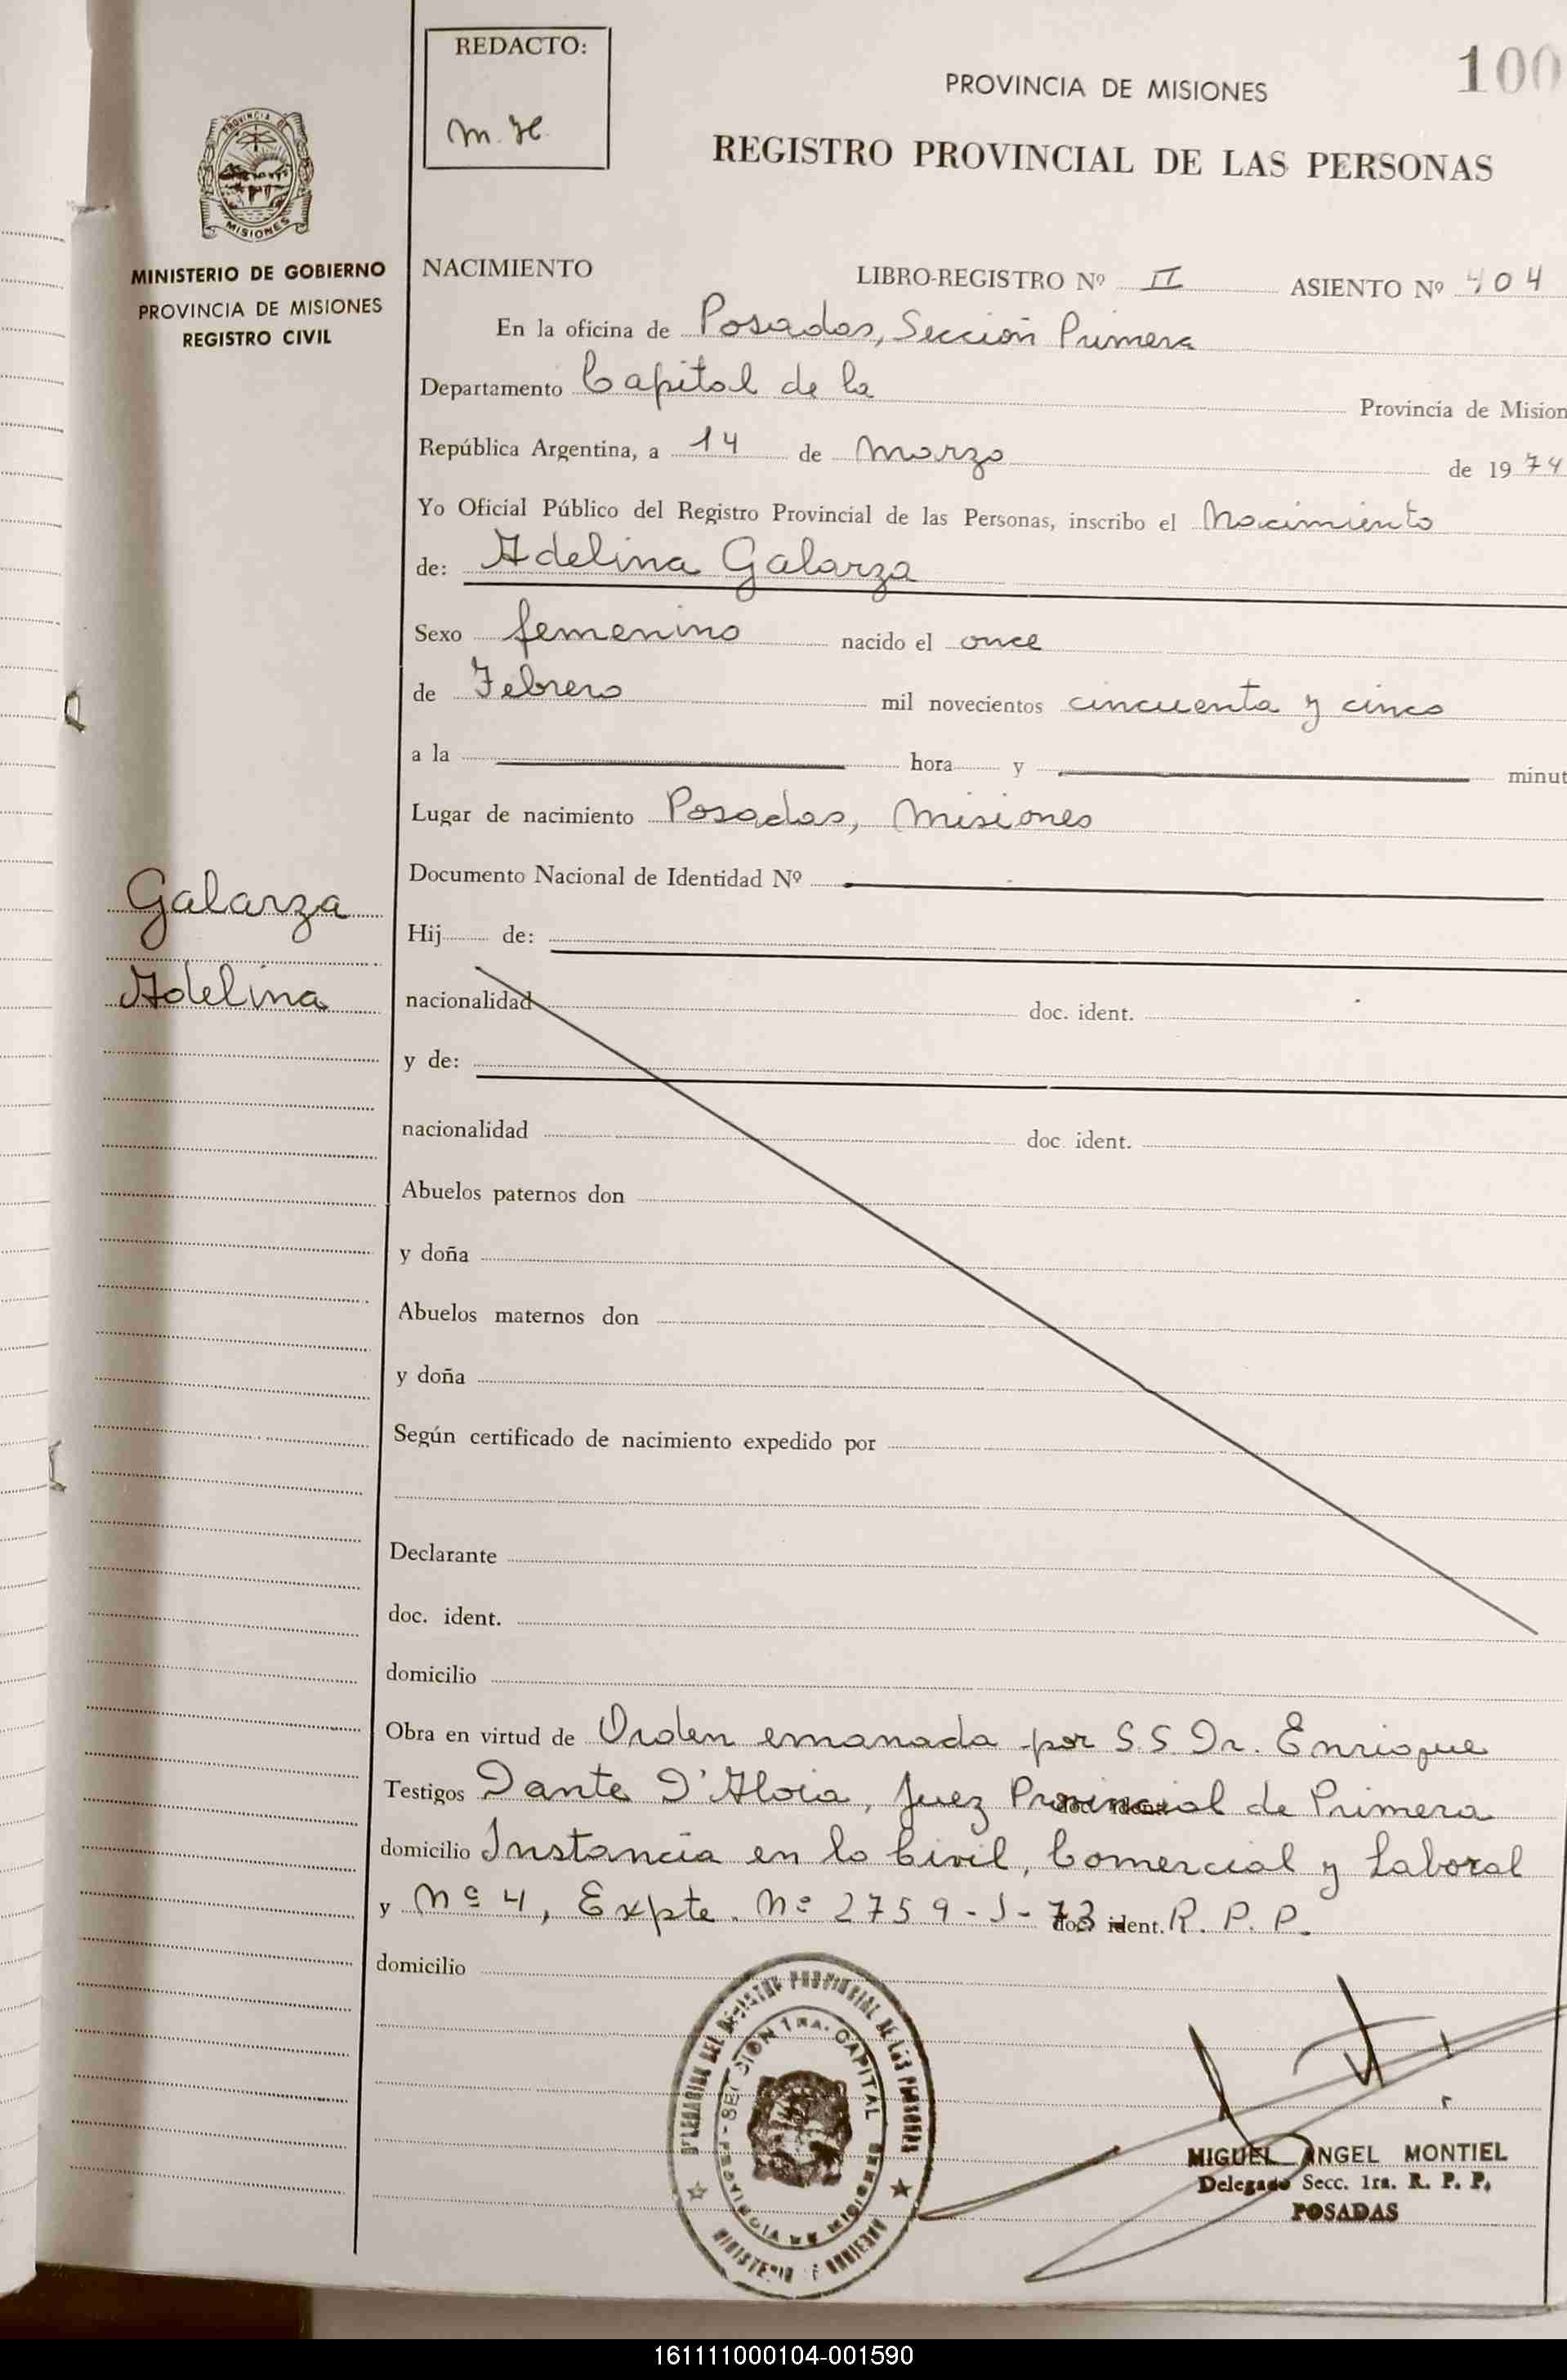 REDACTO:
m. H.
100
PROVINCIA DE MISIONES
REGISTRO PROVINCIAL DE LAS PERSONAS
PROVINCIA DE
MISIONES
MINISTERIO DE GOBIERNO
PROVINCIA DE MISIONES
REGISTRO CIVIL
NACIMIENTO LIBRO-REGISTRO Nº II ASIENTO Nº 404
En la oficina de Posadas, Sección Primera
Departamento Capital de la Provincia de Mision
República Argentina, a 14 de Marzo de 1974
Yo Oficial Público del Registro Provincial de las Personas, inscribo el Nacimiento
de: Adelina Galarza
Sexo femenino nacido el once
de Febrero mil novecientos cincuenta y cinco
a la hora y minut
Lugar de nacimiento Posadas, Misiones
Documento Nacional de Identidad Nº
Galarza
Adelina
Hij de:
nacionalidad doc. ident.
y de:
nacionalidad doc. ident.
Abuelos paternos don
y doña
Abuelos maternos don
y doña
Según certificado de nacimiento expedido por
Declarante
doc. ident.
domicilio
Obra en virtud de Orden emanada por S.S. Dr. Enrique
Testigos Dante D'Aloia, Juez Provincial de Primera
domicilio Instancia en lo Civil, Comercial y Laboral
y Nº 4, Expte. Nº 2759-J-73 doc. ident. R. P. P.
domicilio
DELEGACION DEL REGISTRO PROVINCIAL DE LAS PERSONAS
SECCION 1RA. CAPITAL
PROVINCIA DE MISIONES
MINISTERIO GOBIERNO
MIGUEL ANGEL MONTIEL
Delegado Secc. 1ra. R. P. P.
POSADAS
161111000104-001590